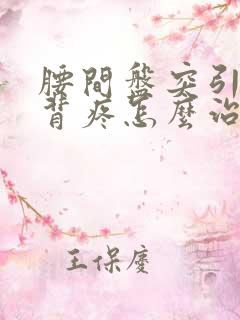 腰間盤突引
背疼怎麼治
王保慶